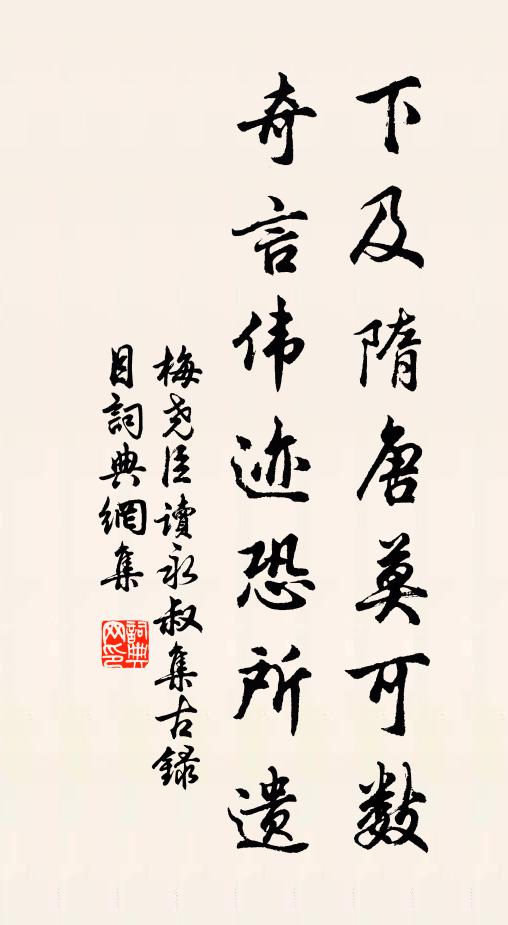 下及隋唐莫可数
奇言伟迹恐所遗
梅尧臣读永叔集古録
目詞典網集
詞典网印